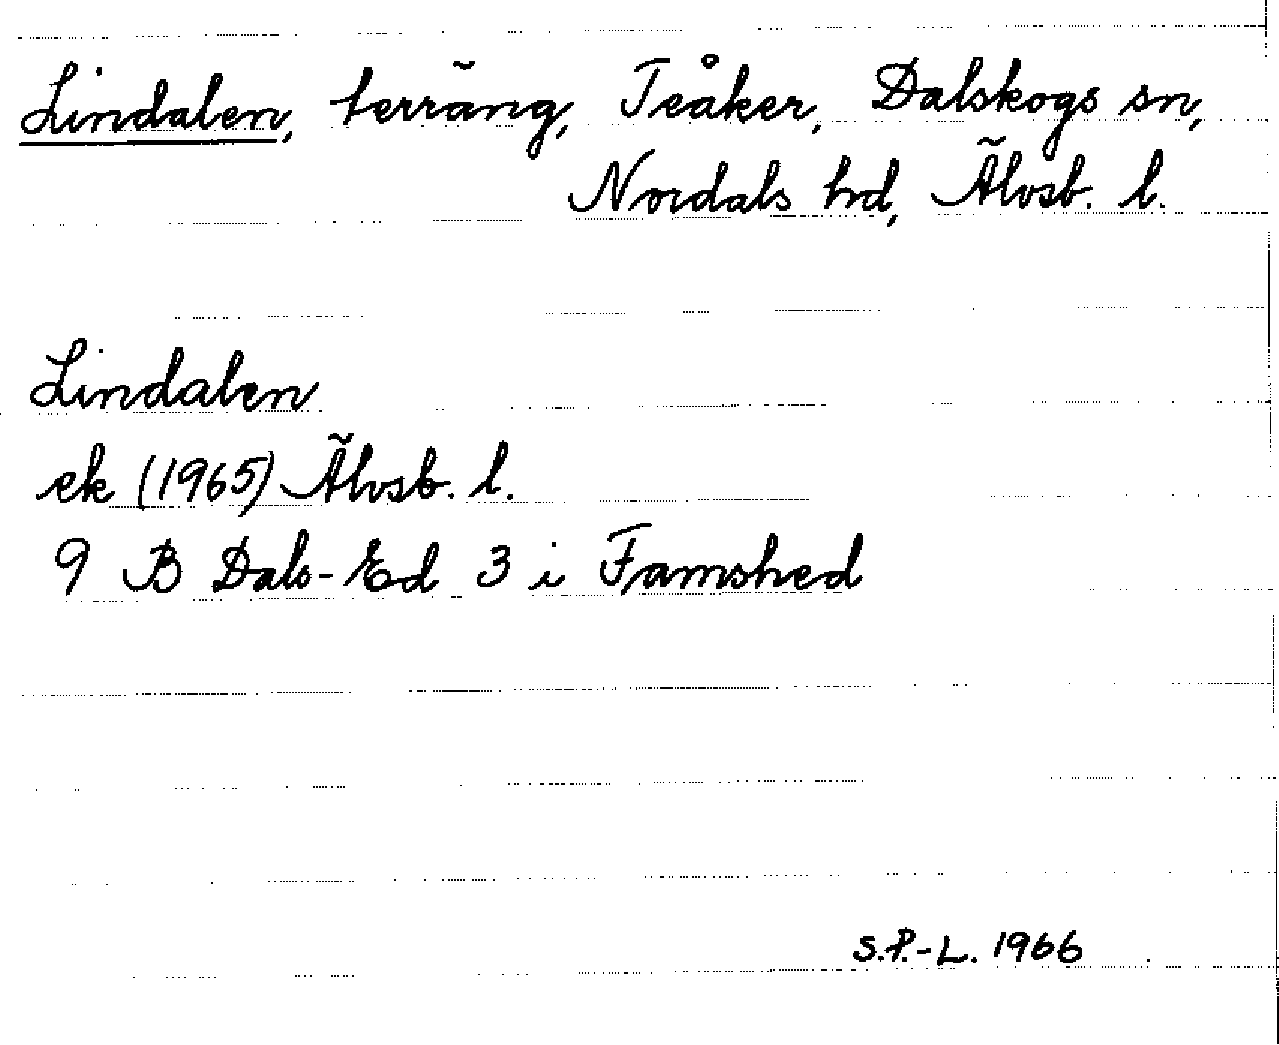 Lindalen, terräng, Teåker, Dalskogs sn,
Nordals hd, Älvsb. l.
Lindalen
ek (1965) Älvsb. l.
9 B Dals-Ed 3 i Framshed
S.P.-L. 1966